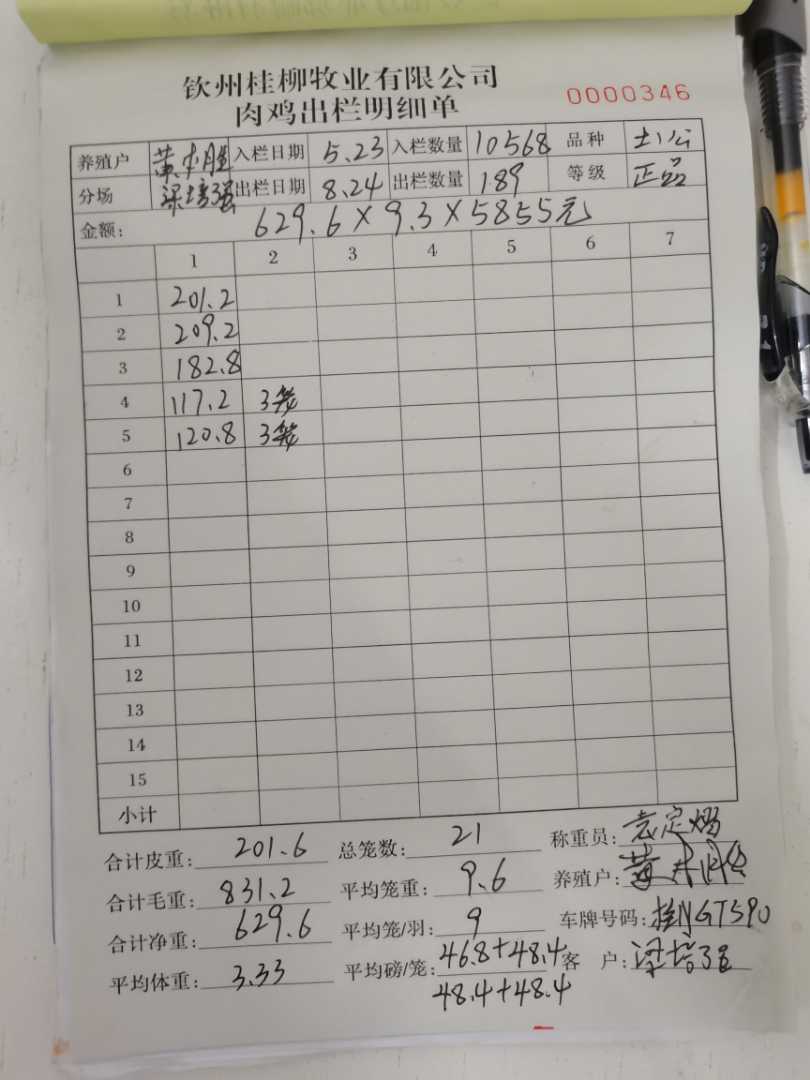 钦州桂柳牧业有限公司
肉鸡出栏明细单 0000346
养殖户 黄 胜 入栏日期 5.23 入栏数量 10568 品种 土公
分场 梁培强 出栏日期 8.24 出栏数量 189 等级 正品
金额: 629.6×9.3×5855元
1 2 3 4 5 6 7
1 201.2
2 209.2
3 182.8
4 117.2 3笼
5 120.8 3笼
6
7
8
9
10
11
12
13
14
15
小计
合计皮重: 201.6 总笼数: 21 称重员: 袁定
合计毛重: 831.2 平均笼重: 9.6 养殖户: 黄
合计净重: 629.6 平均笼/羽: 9 车牌号码: 桂NGT590
平均体重: 3.33 平均磅/笼: 46.8+48.4 客 户: 梁培强
48.4+48.4